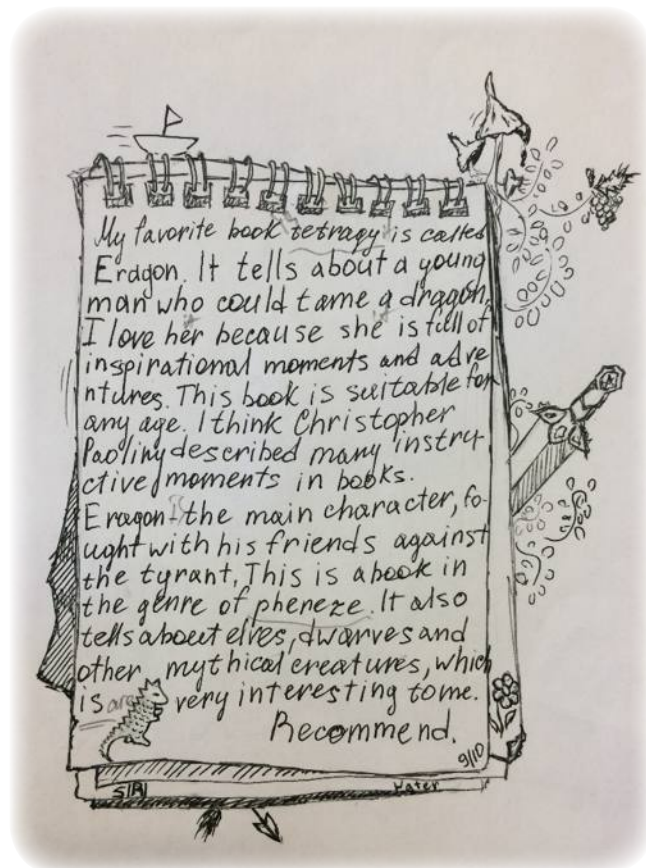 My favorite book tetragy is called
Eragon. It tells about a young
man who could tame a dragon.
it it
I love her because she is full of
inspirational moments and adve
ntures. This book is suitable for
any age. I think Christopher
Paoliny described many instru-
ctive moments in books.
Eragon is the main character, fo-
ught with his friends against
the tyrant. This is a book in
the genre of pheneze. It also
tells about elves, dwarves and
other mythical creatures, which
is are very interesting to me.
Recommend.
9/10